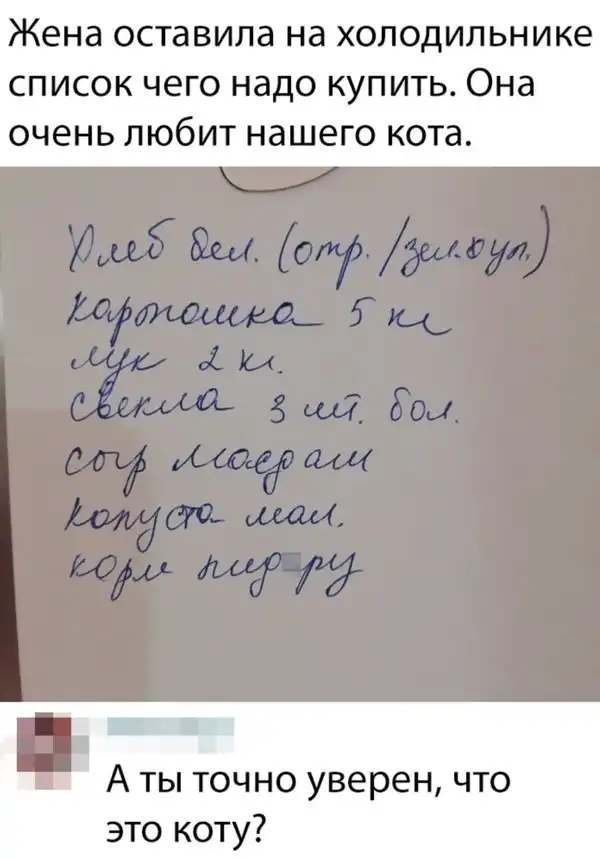 Жена оставила на холодильнике
список чего надо купить. Она
очень любит нашего кота.
Хлеб бел. (отр. /зел.буп.)
картошка 5 кг
лук 2 кг.
Свекла 3 шт. бол.
сыр маасдам
капуста мал.
корм пид ру
А ты точно уверен, что
это коту?